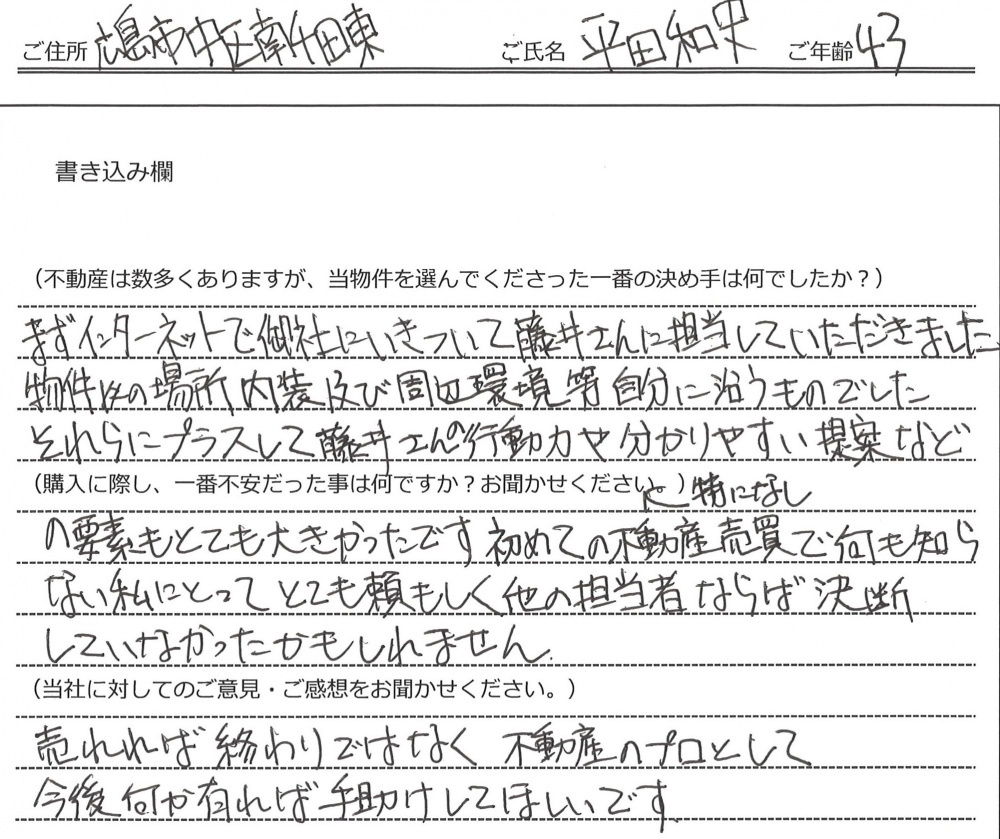 ご住所 広島市中区南千田東 ご氏名 平田和史 ご年齢 43
書き込み欄
（不動産は数多くありますが、当物件を選んでくださった一番の決め手は何でしたか？）
まずインターネットで御社にいきついて藤井さんに担当していただきました。
物件の場所 内装及び周辺環境等自分に沿うものでした
それらにプラスして藤井さんの行動力や分かりやすい提案など
（購入に際し、一番不安だった事は何ですか？お聞かせください。） ← 特になし
の要素もとても大きかったです 初めての不動産売買で何も知ら
ない私にとってとても頼もしく他の担当者ならば決断
していなかったかもしれません.
（当社に対してのご意見・ご感想をお聞かせください。）
売れれば終わりではなく 不動産のプロとして
今後何か有れば手助けしてほしいです